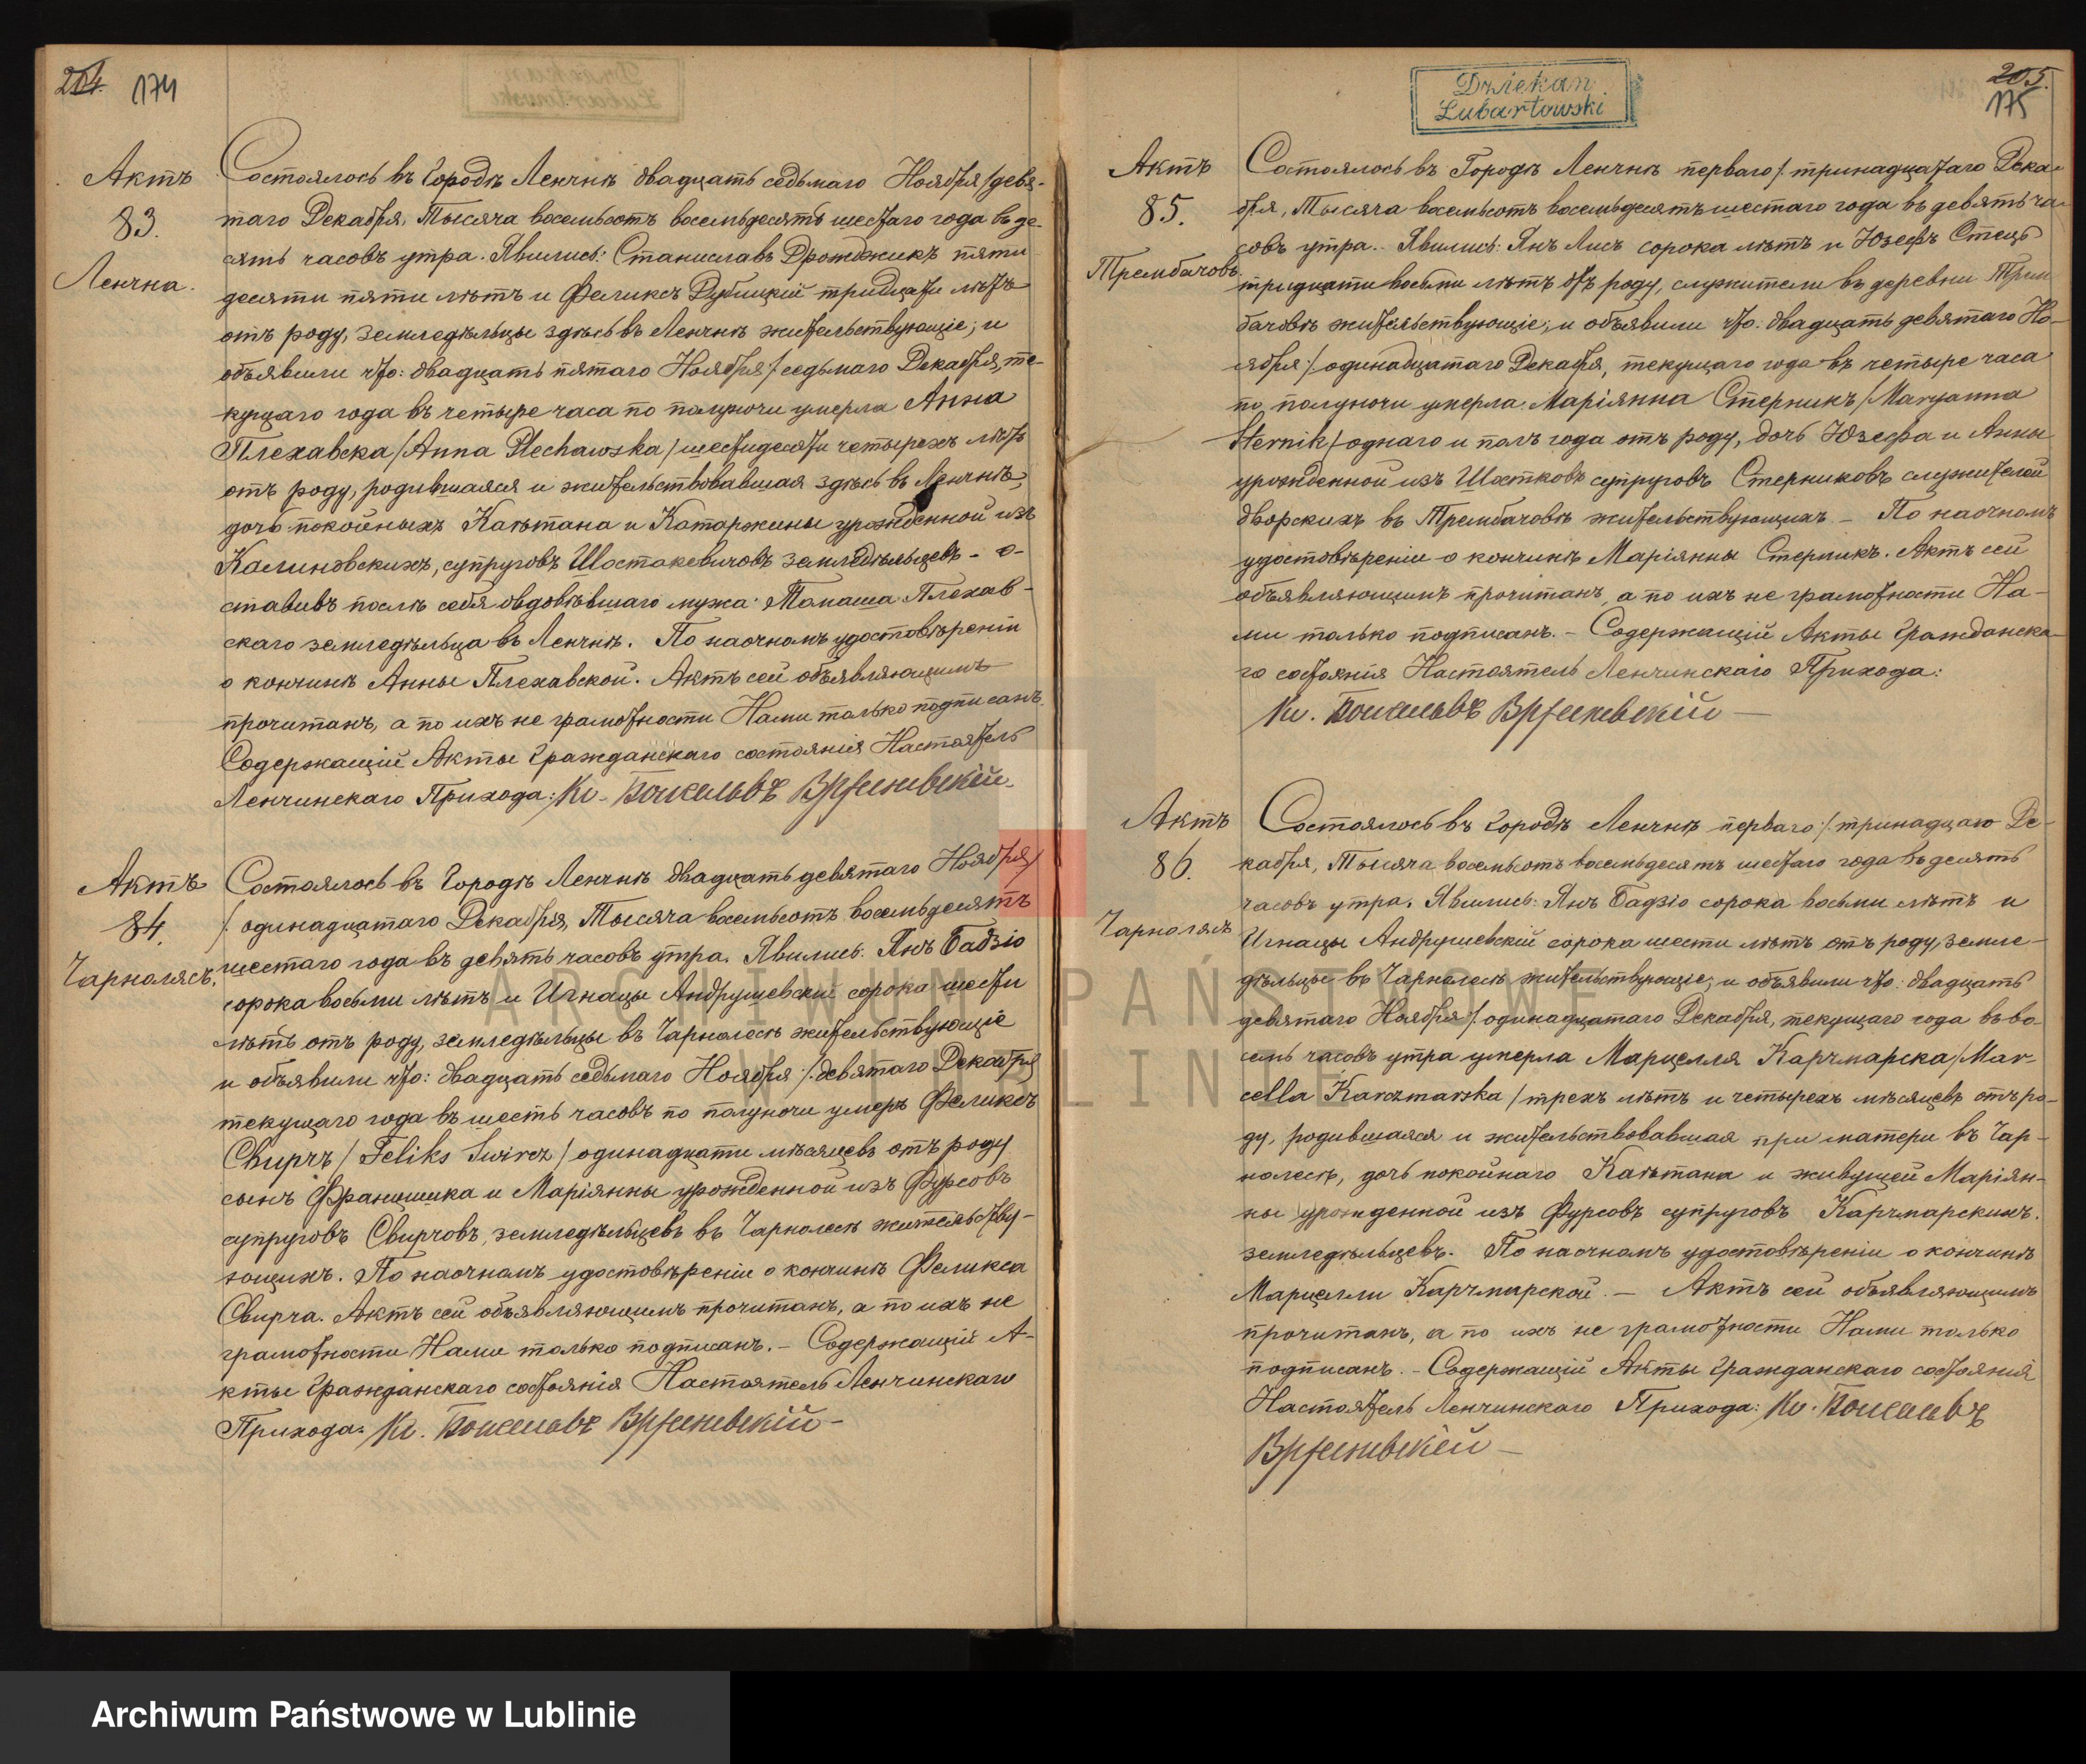 204. 174
Актъ
83.
Ленчна.
Состоялось въ городѣ Ленчнѣ двадцать седьмаго Ноября /девя-
таго Декабря, Тысяча восемьсотъ восемьдесятъ шестаго года въ де-
сять часовъ утра. Явились: Станиславъ Дрожджикъ пяти
десяти пяти лѣтъ и Феликсъ Дубицкій тридцати лѣтъ
отъ роду, земледѣльцы здѣсь въ Ленчнѣ жительствующіе; и
объявили что: двадцать пятаго Ноября / седьмаго Декабря, те-
кущаго года въ четыре часа по полуночи умерла Анна
Плехавска /Anna Plechawska/ шестидесяти четырехъ лѣтъ
отъ роду, родившаяся и жительствовавшая здѣсь въ Ленчнѣ,
дочь покойныхъ Каѣтана и Катаржины урожденной изъ
Калиновскихъ, супруговъ Шостакевичовъ земледѣльцевъ - о-
ставивъ послѣ себя овдовѣвшаго мужа Томаша Плехав-
скаго земледѣльца въ Ленчнѣ. По наочномъ удостовѣреніи
о кончинѣ Анны Плехавской. Актъ сей объявляющимъ
прочитанъ, а по ихъ не грамотности Нами только подписанъ.
Содержащій Акты Гражданскаго состоянія Настоятель
Ленчинскаго Прихода: Кс.
Актъ
84.
Чарнолясъ.
Состоялось въ Городѣ Ленчнѣ двадцать девятаго Ноября/
/. одинадцатаго Декабря, Тысяча восемьсотъ восемьдесятъ
шестаго года въ девять часовъ утра. Явились: Янъ Бадзіо
сорока восьми лѣтъ и Игнацы Андрушевскій сорока шести
лѣтъ отъ роду, земледѣльцы въ Чарнолесѣ жительствующіе
и объявили что: двадцать седьмаго Ноября /. девятаго Декабря
текущаго года въ шесть часовъ по полуночи умеръ Феликсъ
Свирчъ / Feliks Śwircz / одинадцати мѣсяцевъ отъ роду
сынъ Францишка и Маріянны урожденной изъ Фурсовъ
супруговъ Свирчовъ, земледѣльцевъ въ Чарнолесѣ жительству-
ющихъ. По наочномъ удостовѣреніи о кончинѣ Феликса
Свирча. Актъ сей объявляющимъ прочитанъ, а по ихъ не
грамотности Нами только подписанъ. - Содержащій А-
кты Гражданскаго состоянія Настоятель Ленчинскаго
Прихода: Кс.
Dziekan
Lubartowski
205.
175
Актъ
85.
Трембачовъ.
Состоялось въ Городѣ Ленчнѣ перваго /. тринадцатаго Дека-
бря, Тысяча восемьсотъ восемьдесятъ шестаго года въ девять ча-
совъ утра. Явились: Янъ Лисъ сорока лѣтъ и Юзефъ Стець
тридцати восьми лѣтъ отъ роду, служители въ деревни Трем
бачовѣ жительствующіе; и объявили что: двадцать девятаго Но-
ября /. одинадцатаго Декабря, текущаго года въ четыре часа
по полуночи умерла Маріянна Стерникъ /Maryanna
Sternik/ однаго и полъ года отъ роду, дочь Юзефа и Анны
урожденной изъ Шостковъ супруговъ Стерниковъ служителей
дворскихъ въ Трембачовѣ жительствующихъ - По наочномъ
удостовѣреніи о кончинѣ Маріянны Стерникъ. Актъ сей
объявляющимъ прочитанъ, а по ихъ не грамотности На-
ми только подписанъ. - Содержащій Акты Гражданска-
го состоянія Настоятель Ленчинскаго Прихода:
Кс.
Актъ
86.
Чарнолясъ
Состоялось въ городѣ Ленчнѣ перваго /. тринадцаго Де-
кабря, Тысяча восемьсотъ восемьдесятъ шестаго года въ десять
часовъ утра. Явились: Янъ Бадзіо сорока восьми лѣтъ и
Игнацы Андрушевскій сорока шести лѣтъ отъ роду, земле-
дѣльцы въ Чарнолесѣ жительствующіе; и объявили что: двадцать
девятаго Ноября /. одинадцатаго Декабря, текущаго года въ во-
семь часовъ утра умерла Марцелля Карчмарска /Mar-
cella Karczmarska / трехъ лѣтъ и четырехъ мѣсяцевъ отъ ро-
ду, родившаяся и жительствовавшая при матери въ Чар-
нолесѣ, дочь покойнаго Каѣтана и живущей Маріян-
ны урожденной изъ Фурсовъ супруговъ Карчмарскихъ.
земледѣльцевъ. По наочномъ удостовѣреніи о кончинѣ
Марцелли Карчмарской. - Актъ сей объявляющимъ
прочитанъ, а по ихъ не грамотности Нами только
подписанъ. - Содержащій Акты Гражданскаго состоянія
Настоятель Ленчинскаго Прихода: Кс.
ARCHIWUM PAŃSTWOWE
W LUBLINIE
Archiwum Państwowe w Lublinie